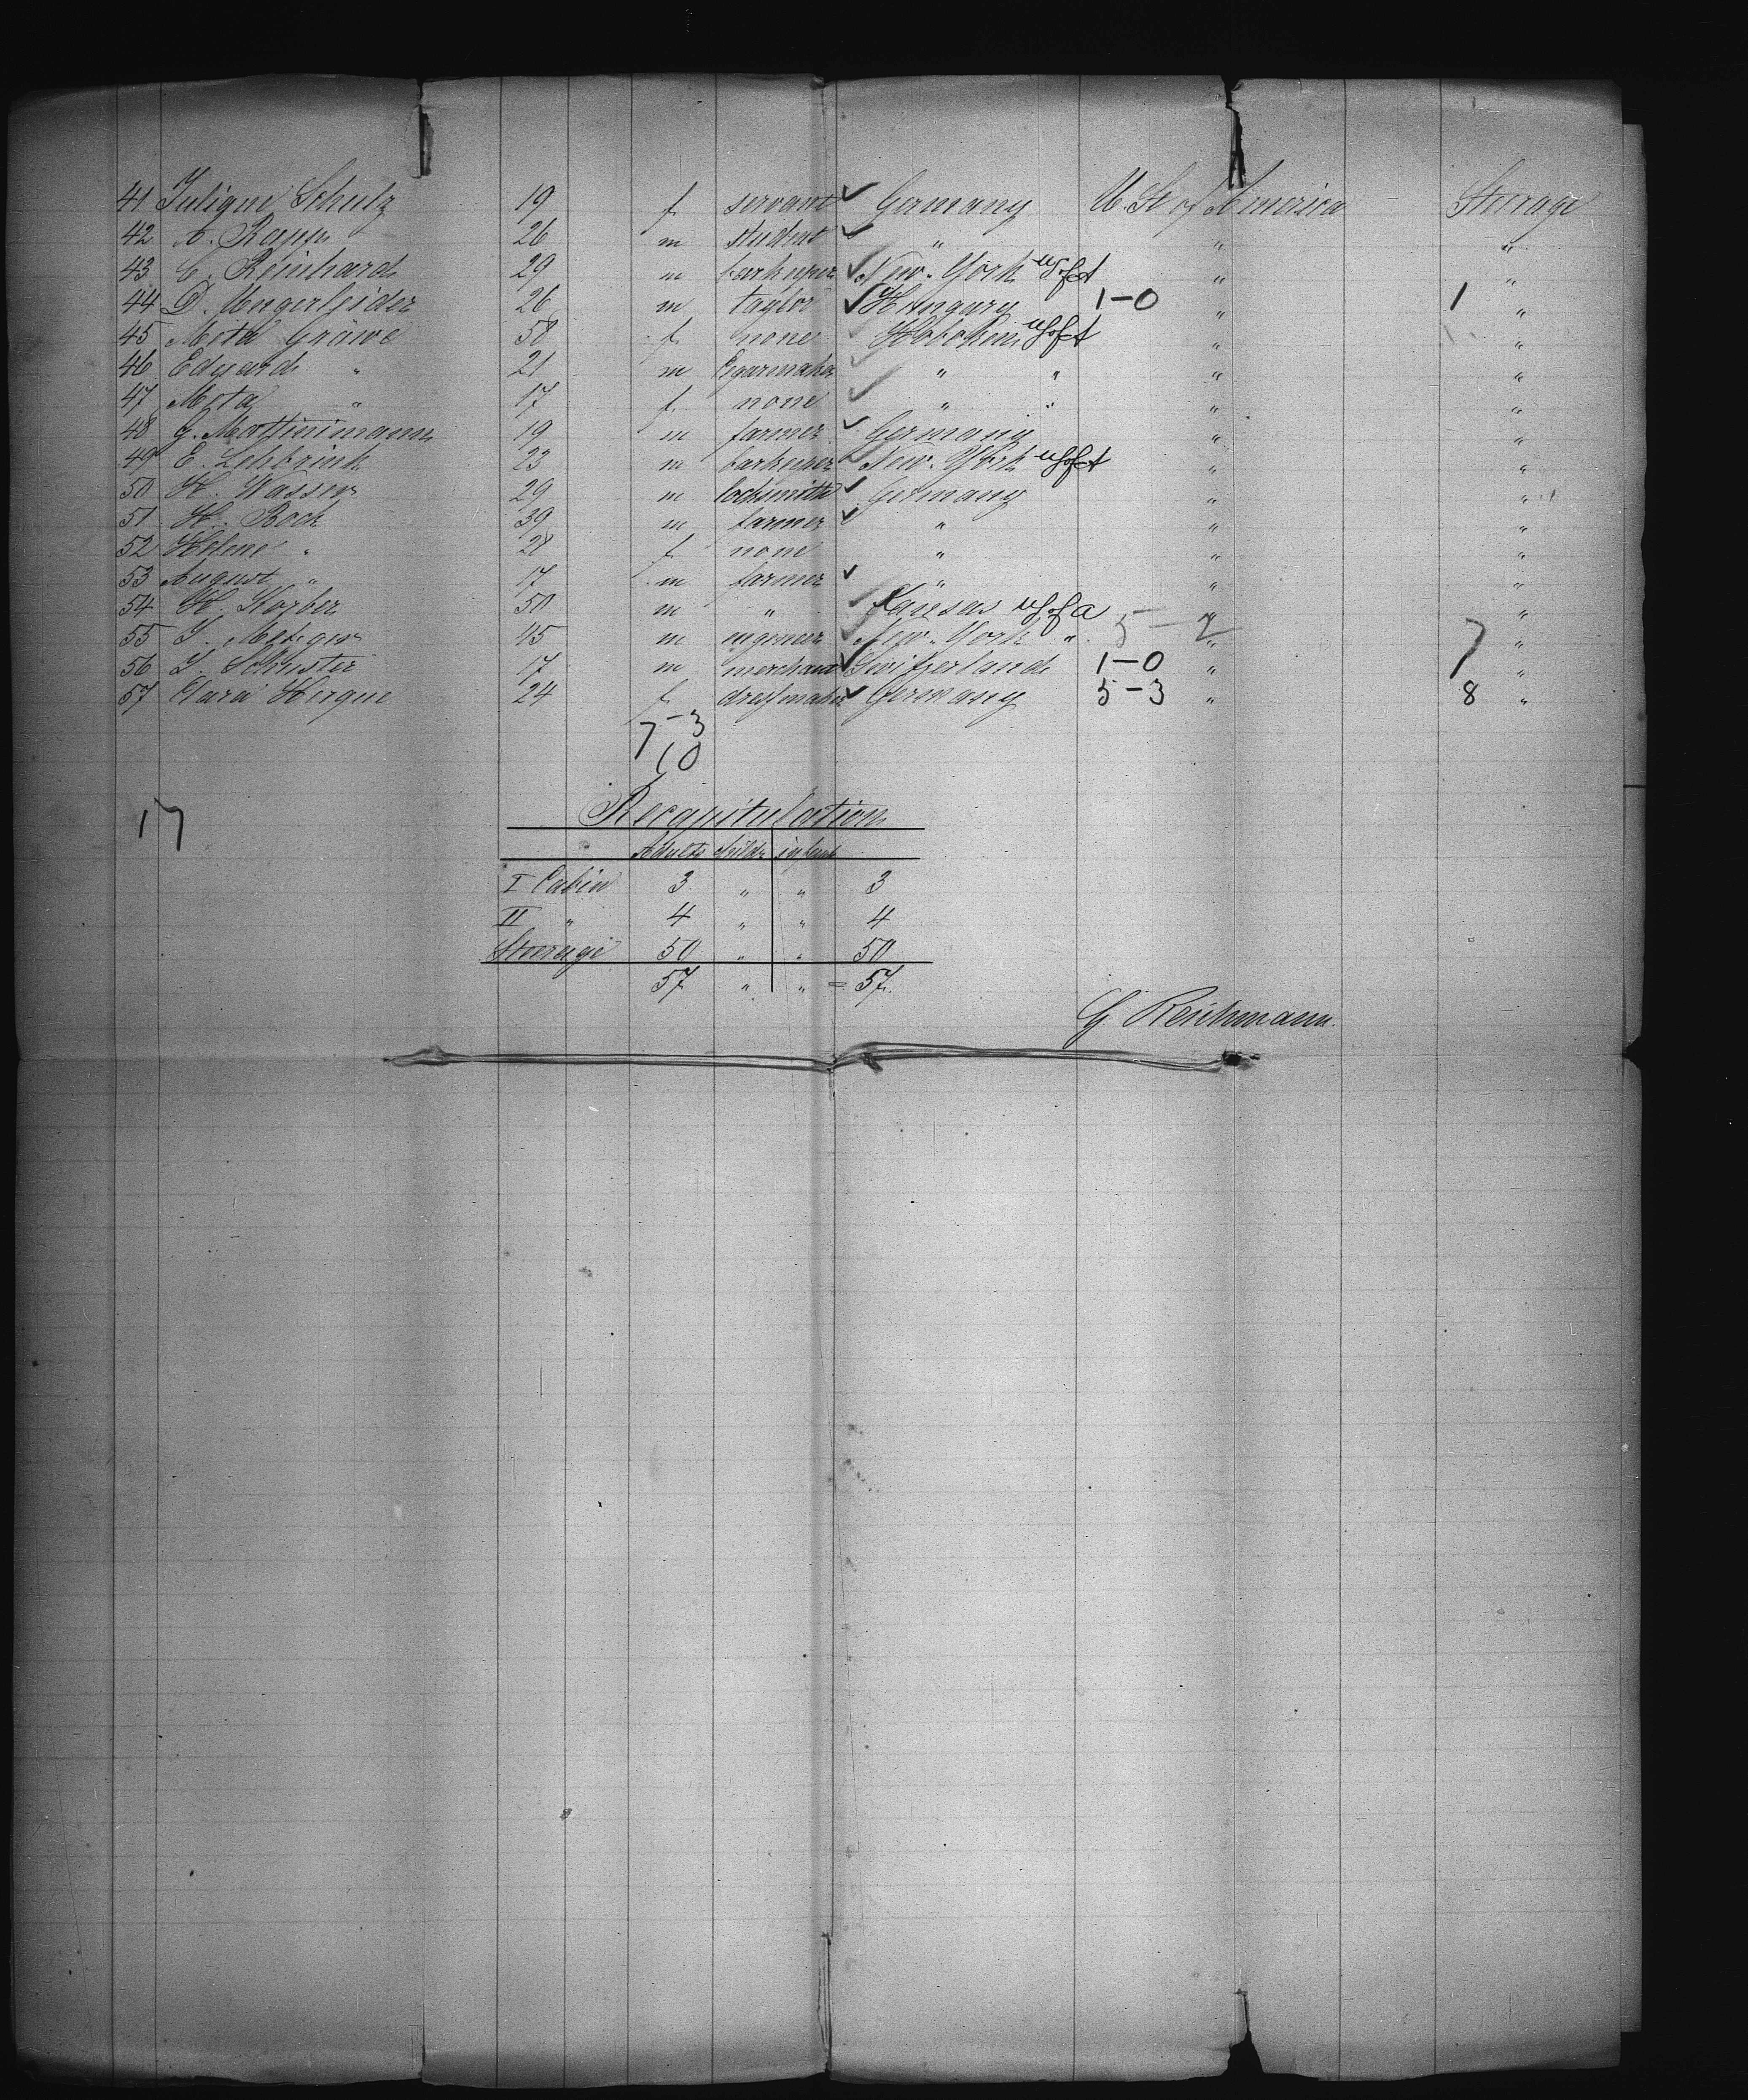 41 Juligne Schulz 19 f servant ✓ Germany U. St of America Steerage
42 A. Rapp 26 m student ✓ " " "
43 C. Reinhard 29 m barkeeper ✓ New-York " "
44 D. Ungerleider 26 m taylor ✓ Hungary 1-0 " 1 "
45 Meta Gräwe 58 f none ✓ Hoboken " "
46 Eduard " 21 m Cigarmaker ✓ " " " "
47 Meta " 17 f. none ✓ " " " "
48 G. 19 m farmer ✓ Germany " "
49 E. 23 m barkeeper ✓ New-York " "
50 H. Wasser 29 m locksmith ✓ Germany " "
51 H. Bock 39 m farmer ✓ " " "
52 Helene " 28 f none " " "
53 August " 17 m farmer ✓ " " "
54 H. Korber 50 m " ✓ Kansas " "
55 J. Metzger 45 m ingineer ✓ New-York " 5-2 " 7 "
56 J. Schuster 17 m merchant ✓ Switzerland 1-0 " "
57 Clara 24 f dressmaker ✓ Germany 5-3 " 8 "
7-3
10
17
Recapitulation
Adults Childr infant
I Cabin 3 " " 3
II " 4 " " 4
Steerage 50 " " 50
57 " " = 57.
G Reichmann.